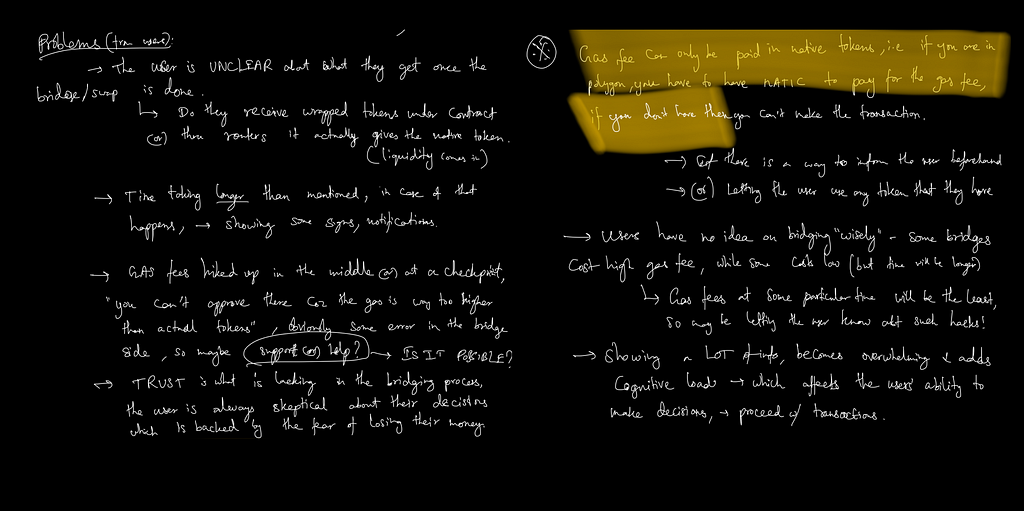 Problems (from users):
→ The user is UNCLEAR abt what they get once the
bridge/swap is done.
↳ Do they receive wrapped tokens under contract
(or) thru routers it actually gives the native token.
(liquidity comes in)
→ Time taking longer than mentioned, in case of that
happens, → showing some signs, notifications.
→ GAS fees hiked up in the middle (or) at a checkpoint,
"you can't approve these coz the gas is way too higher
than actual tokens", obviously some error in the bridge
side, so maybe support (or) help? → IS IT POSSIBLE?
→ TRUST is what is lacking in the bridging process,
the user is always skeptical about their decisions
which is backed by the fear of losing their money.
Gas fee can only be paid in native tokens, i.e if you are in
polygon, you have to have MATIC to pay for the gas fee,
if you don't have then you can't make the transaction.
→ If there is a way to inform the user beforehand
→ (or) Letting the user use any token that they have
→ Users have no idea on bridging "wisely" - some bridges
cost high gas fee, while some costs low (but time will be longer)
↳ Gas fees at some particular time will be the least,
so may be letting the user know abt such hacks!
→ Showing a LOT of info, becomes overwhelming & adds
Cognitive load → which affects the users' ability to
make decisions, → proceed w/ transactions.